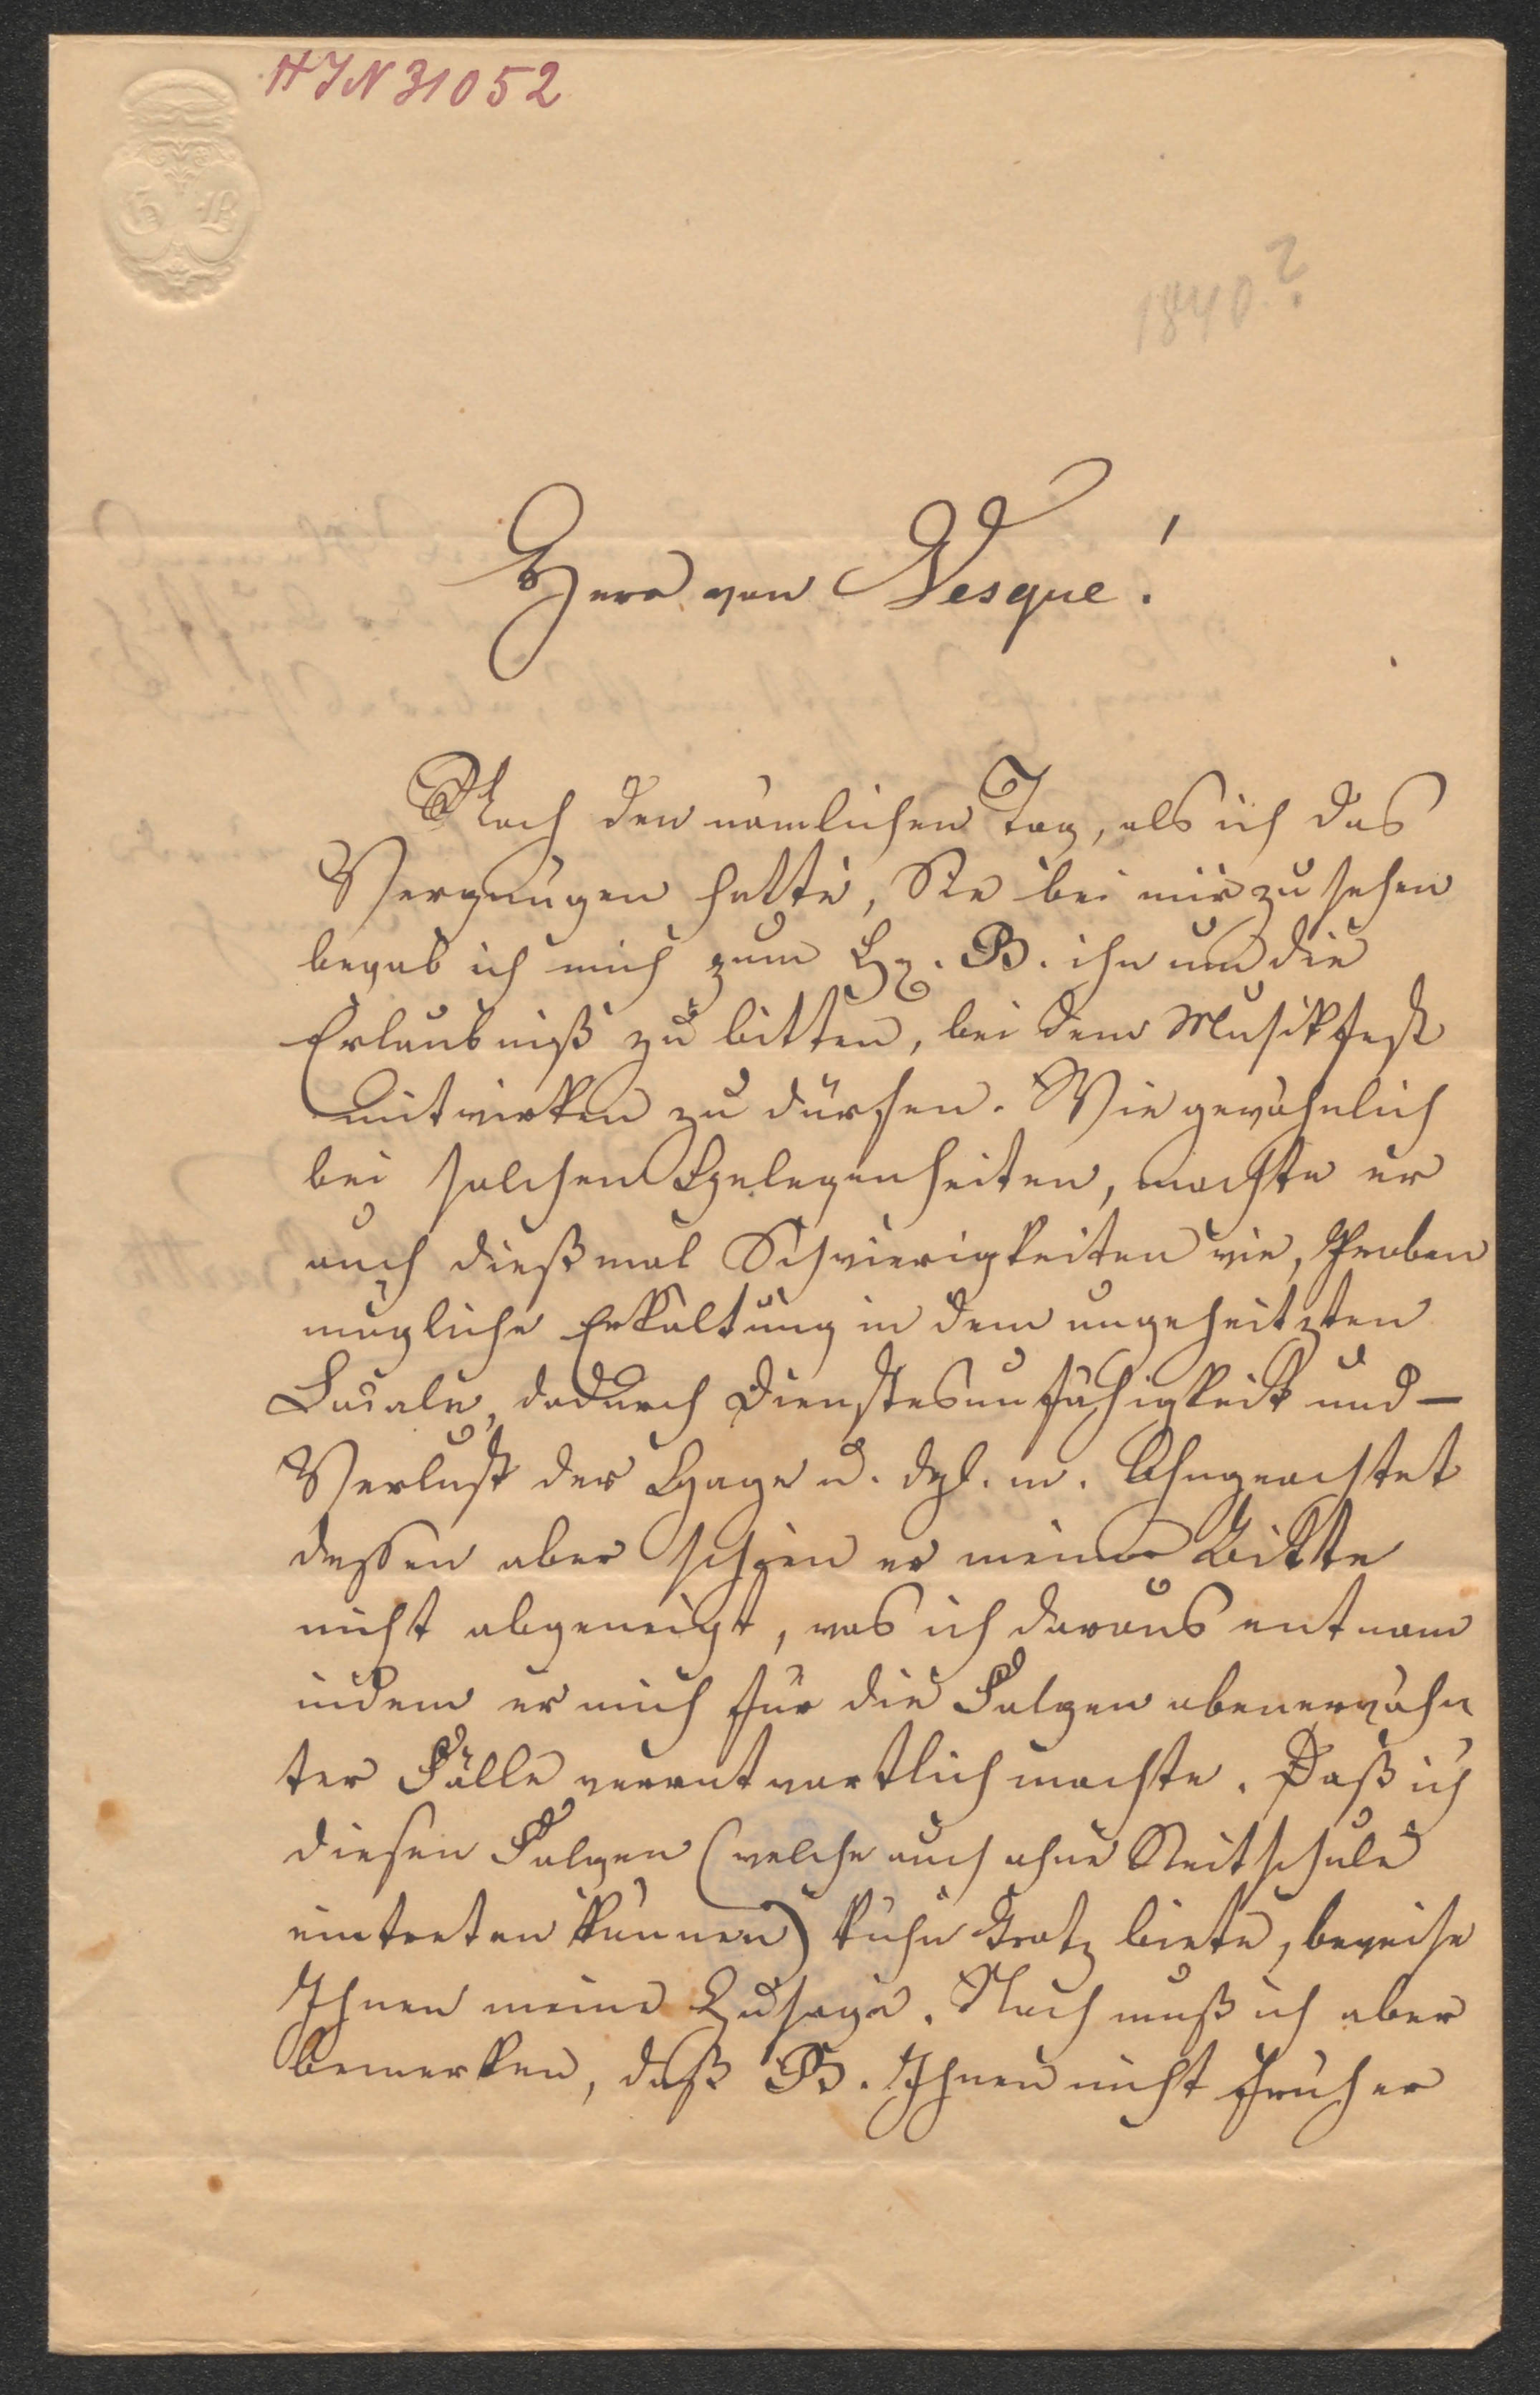 HIN 31052
1840?
Herr von Vesque!
Noch den nämlichen Tag, als ich das
Vergnügen hatte, Sie bei mir zu sehen
begab ich mich zum H. B. ihn um die
Erlaubniß zu bitten, bei dem Musikfest
mitwirken zu dürfen. Wie gewöhnlich
bei solchen Gelegenheiten, machte er
auch dießmal Schwierigkeiten wie, Proben
mögliche Erkältung in dem ungeheitzten
Locale, dadurch Dienstesunfähigkeit und –
Verlust der Gage u. dgl. m. Ohngeachtet
dessen aber schien er meiner Bitte
nicht abgeneigt, was ich daraus entnam
indem er mich für die Folgen obenerwähn
ter Fälle verantwortlich machte. Daß ich
diesen Folgen (welche auch ohne Reitschule
eintreten können) kühn Trotz biete, beweise
Ihnen meine Zusage. Noch muß ich aber
bemerken, daß B. Ihnen nicht früher